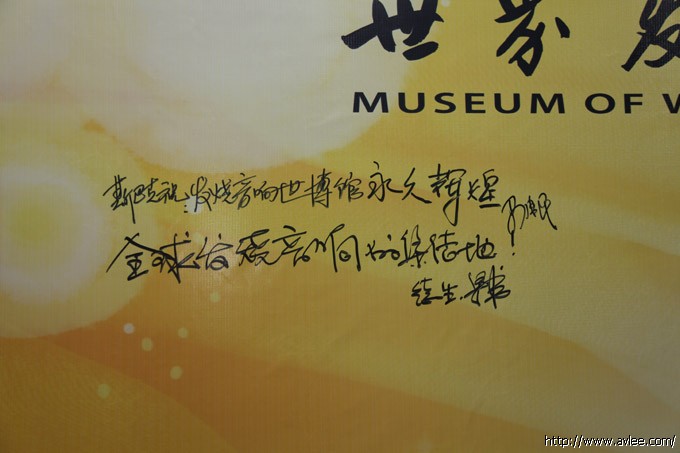 世界发
MUSEUM OF W
斯巴克祝:发烧音响世博馆永久辉煌
全球发烧音响的集结地!
http://www.avlee.com/